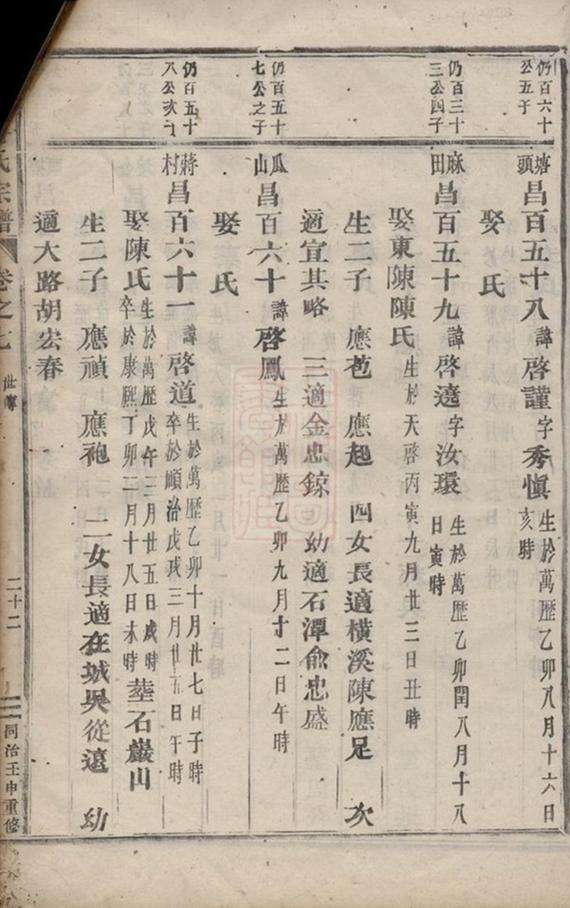 仍百六十
公五子
塘頭昌百五十八諱啓謹字秀愼生於萬歷乙卯八月十六日亥時
娶氏
仍百三十
三公四子
麻田昌百五十九諱啓遠字汝環生於萬歷乙卯閏八月十八日寅時
娶東陳陳氏生於天啓丙寅九月廿三日丑時
生二子 應苞 應起 四女長適橫溪陳應足 次
適宜其略 三適金忠鍄 幼適石潭兪忠盛
仍百五十
七公之子
瓜山昌百六十諱啓鳳生於萬歷乙卯九月十二日午時
娶氏
仍百五十
八公次子
蔣村昌百六十一諱啓道生於萬歷乙卯十月廿七日子時卒於順治戊戌三月廿五日午時
娶陳氏生於萬歷戊午三月廿五日戌時卒於康熙丁卯二月十八日未時塟石巖山
生二子 應禎 應袍 二女長適在城吳從遠 幼
適大路胡宏春
氏宗譜 卷之七 世傳 二十二 同治壬申重修